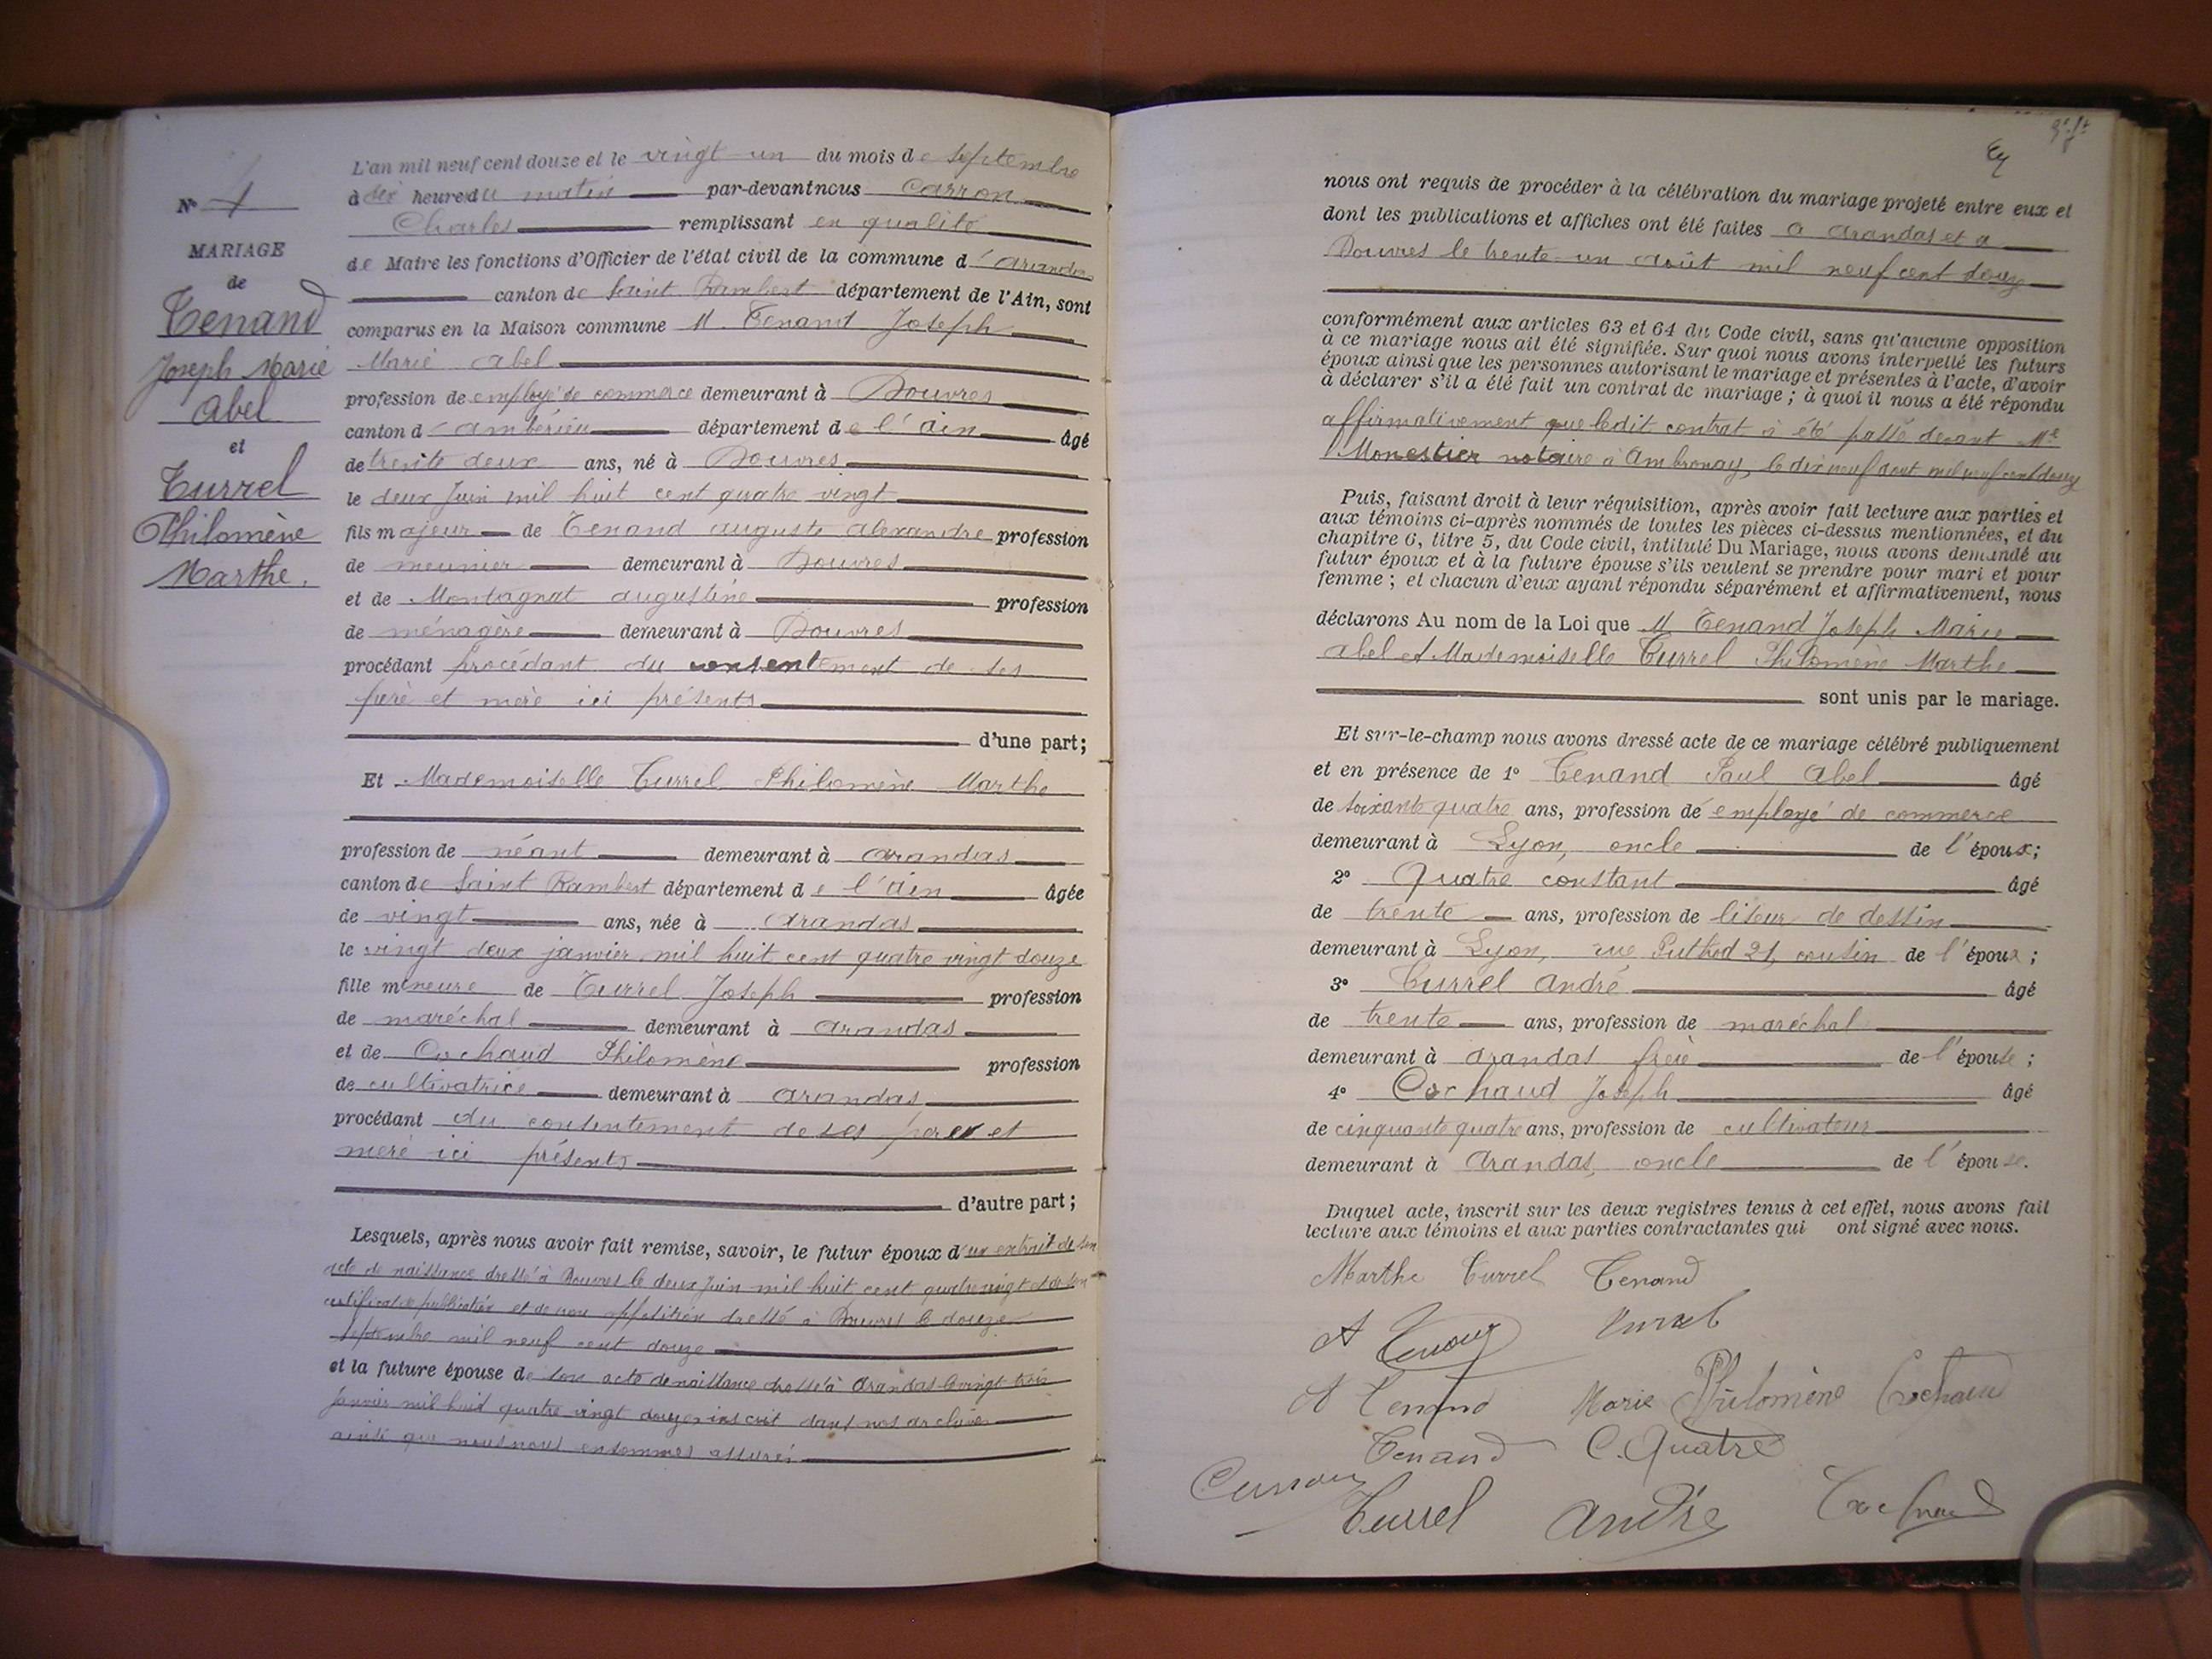 N° 4
MARIAGE
de
Tenand
Joseph Marie
Abel
et
Turrel
Philomène
Marthe.
L'an mil neuf cent douze et le vingt un du mois de septembre
à dix heure du matin par-devant nous Carron
Charles remplissant en qualité
de Maire les fonctions d'Officier de l'état civil de la commune d'Arandas
canton de Saint Rambert département de l'Ain, sont
comparus en la Maison commune M. Tenand Joseph
Marie Abel
profession de employé de commerce demeurant à Douvres
canton d'Ambérieu département de l'Ain âgé
de trente deux ans, né à Douvres
le deux Juin mil huit cent quatre vingt
fils majeur de Tenand Auguste Alexandre profession
de meunier demeurant à Douvres
et de Montagnat Augustine profession
de ménagère demeurant à Douvres
procédant procédant du consentement de ses
père et mère ici présents
d'une part;
Et Mademoiselle Turrel Philomène Marthe
profession de néant demeurant à Arandas
canton de Saint Rambert département de l'Ain âgée
de vingt ans, née à Arandas
le vingt deux janvier mil huit cent quatre vingt douze
fille mineure de Turrel Joseph profession
de maréchal demeurant à Arandas
et de Cochaud Philomène profession
de cultivatrice demeurant à Arandas
procédant du consentement de ses père et
mère ici présents
d'autre part;
Lesquels, après nous avoir fait remise, savoir, le futur époux d'un extrait de son
acte de naissance dressé à Douvres le deux Juin mil huit cent quatre vingt et de son
certificat de publication et de non opposition dressé à Douvres le douze
septembre mil neuf cent douze
et la future épouse de son acte de naissance dressé à Arandas le vingt trois
janvier mil huit quatre vingt douze inscrit dans nos archives
ainsi que nous nous en sommes assurés
nous ont requis de procéder à la célébration du mariage projeté entre eux et
dont les publications et affiches ont été faites à Arandas et à
Douvres le trente un août mil neuf cent douze
conformément aux articles 63 et 64 du Code civil, sans qu'aucune opposition
à ce mariage nous ait été signifiée. Sur quoi nous avons interpellé les futurs
époux ainsi que les personnes autorisant le mariage et présentes à l'acte, d'avoir
à déclarer s'il a été fait un contrat de mariage; à quoi il nous a été répondu
affirmativement que ledit contrat à été passé devant Me
Monestier notaire à Ambronay, le dix neuf août mil neuf cent douze
Puis, faisant droit à leur réquisition, après avoir fait lecture aux parties et
aux témoins ci-après nommés de toutes les pièces ci-dessus mentionnées, et du
chapitre 6, titre 5, du Code civil, intitulé Du Mariage, nous avons demandé au
futur époux et à la future épouse s'ils veulent se prendre pour mari et pour
femme; et chacun d'eux ayant répondu séparément et affirmativement, nous
déclarons Au nom de la Loi que M Tenand Joseph Marie
Abel et Mademoiselle Turrel Philomène Marthe
sont unis par le mariage.
Et sur-le-champ nous avons dressé acte de ce mariage célébré publiquement
et en présence de 1° Tenand Paul Abel âgé
de soixante quatre ans, profession de employé de commerce
demeurant à Lyon, oncle de l'époux;
2° Quatre constant âgé
de trente ans, profession de liseur de dessin
demeurant à Lyon, rue Puthod 21, cousin de l'époux;
3° Turrel André âgé
de trente ans, profession de maréchal
demeurant à Arandas frère de l'épouse;
4° Cochaud Joseph âgé
de cinquante quatre ans, profession de cultivateur
demeurant à Arandas, oncle de l'épouse.
Duquel acte, inscrit sur les deux registres tenus à cet effet, nous avons fait
lecture aux témoins et aux parties contractantes qui ont signé avec nous.
Marthe Turrel Tenand
A Tenand Turrel
A Tenand Marie Philomène Cochaud
Tenand C. Quatre
Carron
Turrel André Cochaud